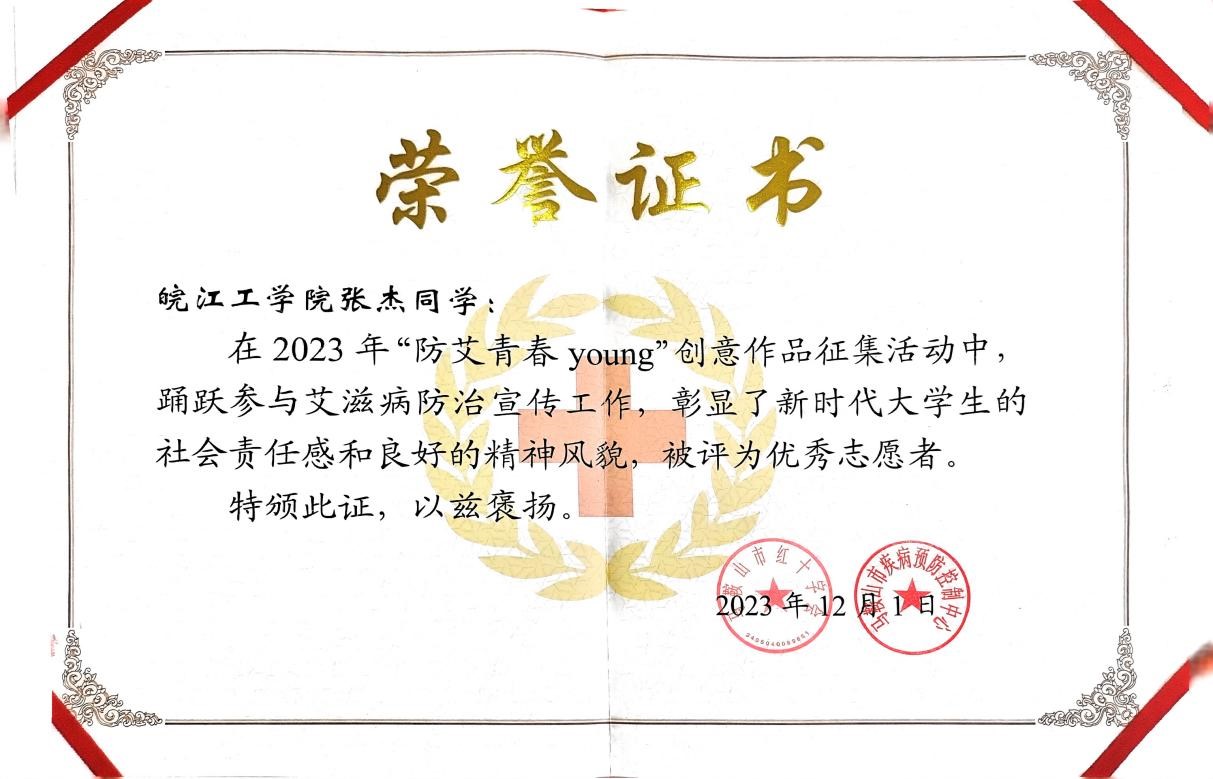 荣誉证书
皖江工学院张杰同学：
在 2023 年“防艾青春 young”创意作品征集活动中，
踊跃参与艾滋病防治宣传工作，彰显了新时代大学生的
社会责任感和良好的精神风貌，被评为优秀志愿者。
特颁此证，以兹褒扬。
马鞍山市红十字会
马鞍山市疾病预防控制中心
2023 年 12 月 1 日